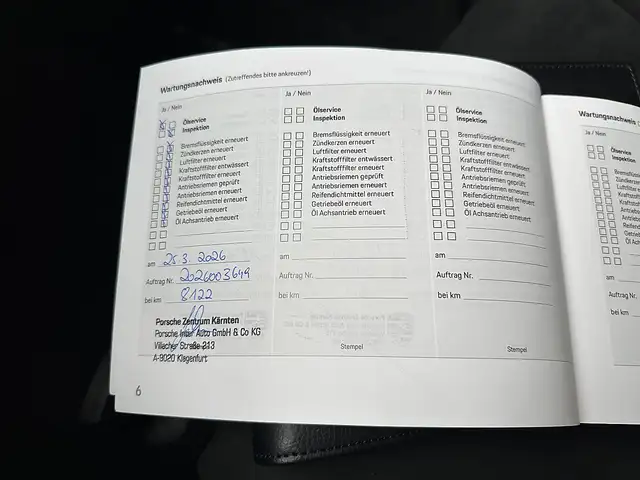 Wartungsnachweis (Zutreffendes bitte ankreuzen!)
Ja / Nein
Ölservice
Inspektion
Bremsflüssigkeit erneuert
Zündkerzen erneuert
Luftfilter erneuert
Kraftstofffilter entwässert
Kraftstofffilter erneuert
Antriebsriemen geprüft
Antriebsriemen erneuert
Reifendichtmittel erneuert
Getriebeöl erneuert
Öl Achsantrieb erneuert
am 25.3.2026
Auftrag Nr. 2026003649
bei km 8122
Porsche Zentrum Kärnten
Porsche Inter Auto GmbH & Co KG
Villacher Straße 213
A-9020 Klagenfurt
6
Ja / Nein
Ölservice
Inspektion
Bremsflüssigkeit erneuert
Zündkerzen erneuert
Luftfilter erneuert
Kraftstofffilter entwässert
Kraftstofffilter erneuert
Antriebsriemen geprüft
Antriebsriemen erneuert
Reifendichtmittel erneuert
Getriebeöl erneuert
Öl Achsantrieb erneuert
am
Auftrag Nr.
bei km
Stempel
Ja / Nein
Ölservice
Inspektion
Bremsflüssigkeit erneuert
Zündkerzen erneuert
Luftfilter erneuert
Kraftstofffilter entwässert
Kraftstofffilter erneuert
Antriebsriemen geprüft
Antriebsriemen erneuert
Reifendichtmittel erneuert
Getriebeöl erneuert
Öl Achsantrieb erneuert
am
Auftrag Nr.
bei km
Stempel
Wartungsnachweis
Ja / Nein
Ölservice
Inspektion
am
Auftrag Nr.
bei km